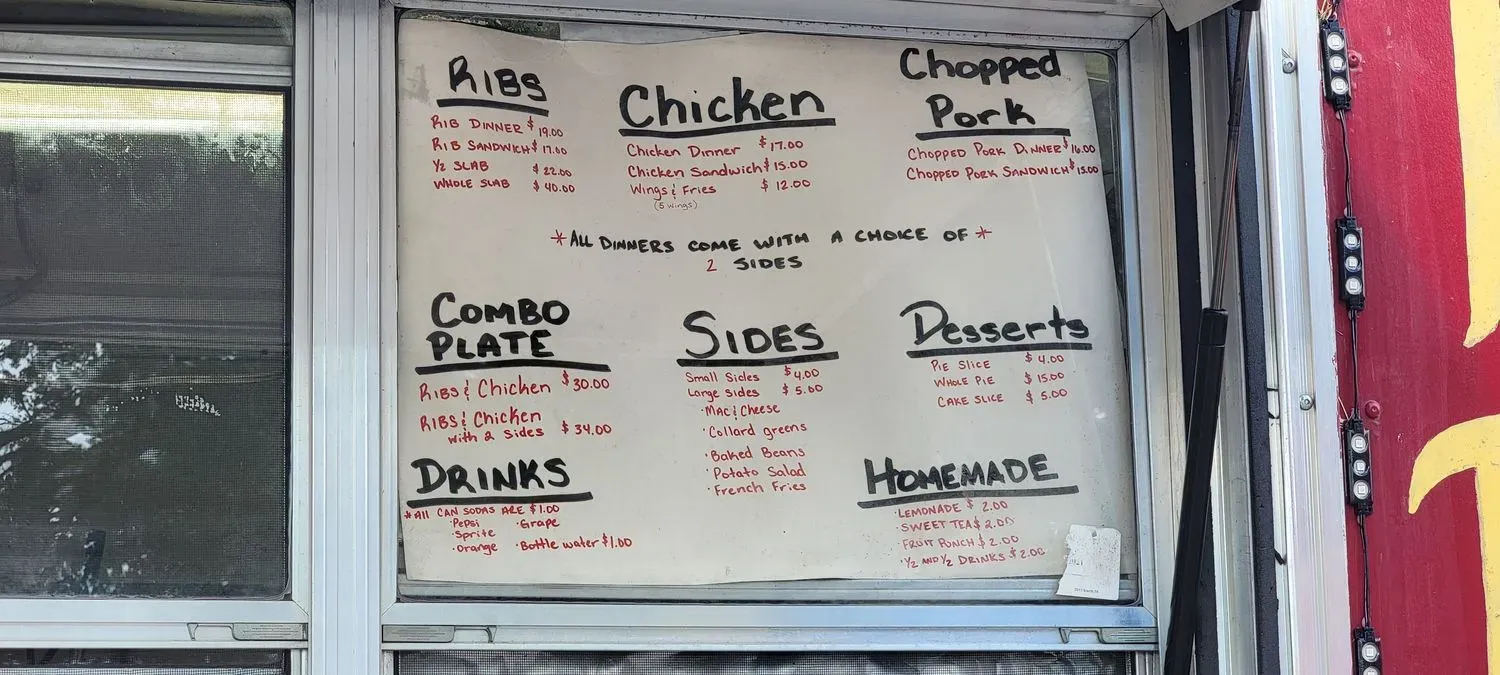 RIBS
RIB DINNER $19.00
RIB SANDWICH $17.00
½ SLAB $22.00
WHOLE SLAB $40.00
Chicken
Chicken Dinner $17.00
Chicken Sandwich $15.00
Wings & Fries $12.00
(5 wings)
Chopped
Pork
CHOPPED PORK DINNER $16.00
CHOPPED PORK SANDWICH $15.00
*ALL DINNERS COME WITH A CHOICE OF*
2 SIDES
COMBO
PLATE
RIBS & Chicken $30.00
RIBS & Chicken
with 2 Sides $34.00
SIDES
Small Sides $4.00
Large Sides $5.00
·MAC & Cheese
·Collard greens
·Baked Beans
·Potato Salad
·French Fries
Desserts
PIE SLICE $4.00
WHOLE PIE $15.00
CAKE SLICE $5.00
DRINKS
*All CAN SODAS ARE $1.00
·Pepsi ·Grape
·Sprite
·Orange ·Bottle water $1.00
HOMEMADE
·LEMONADE $2.00
·SWEET TEA $2.00
·FRUIT PUNCH $2.00
·½ AND ½ DRINKS $2.00